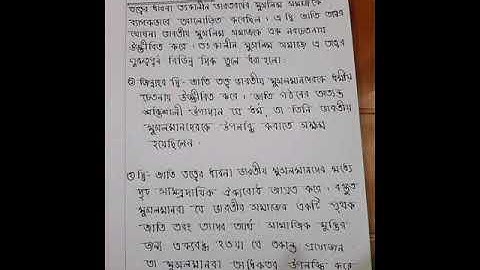 তত্ত্বের ধারনা তৎকালীন ভারতবর্ষের মুসলিম সমাজকে
ব্যাপকভাবে আলোড়িত করেছিল। এ দ্বি জাতি তত্ত্বের
ঘোষনা ভারতীয় মুসলিম সমাজকে এক নবচেতনায়
উজ্জীবিত করে। তৎকালীন মুসলিম সমাজে এ তত্ত্বের
গুরুত্বপূর্ন বিভিন্ন দিক তুলে ধরা হলো:
জিন্নাহর দ্বি- জাতি তত্ত্ব ভারতীয় মুসলমানদেরকে ধর্মীয়
চেতনায় উজ্জীবিত করে। জাতি গঠনের অত্যন্ত
শক্তিশালী উপাদান যে ধর্ম, তা তিনি ভারতীয়
মুসলমানদেরকে উপলব্ধি করাতে সক্ষম
হয়েছিলেন।
দ্বি- জাতি তত্ত্বের ধারনা ভারতীয় মুসলমানদের মধ্যে
দৃঢ় সাম্প্রদায়িক ঐক্যবোধ জাগ্রত করে। বস্তুত
মুসলমানরা যে ভারতীয় সমাজের একটি পৃথক
জাতি এবং তাদের আর্থ সামাজিক মুক্তির
জন্য ঐক্যবদ্ধ হওয়া যে একান্ত প্রয়োজন
তা মুসলমানরা অধিকতর উপলব্ধি করে